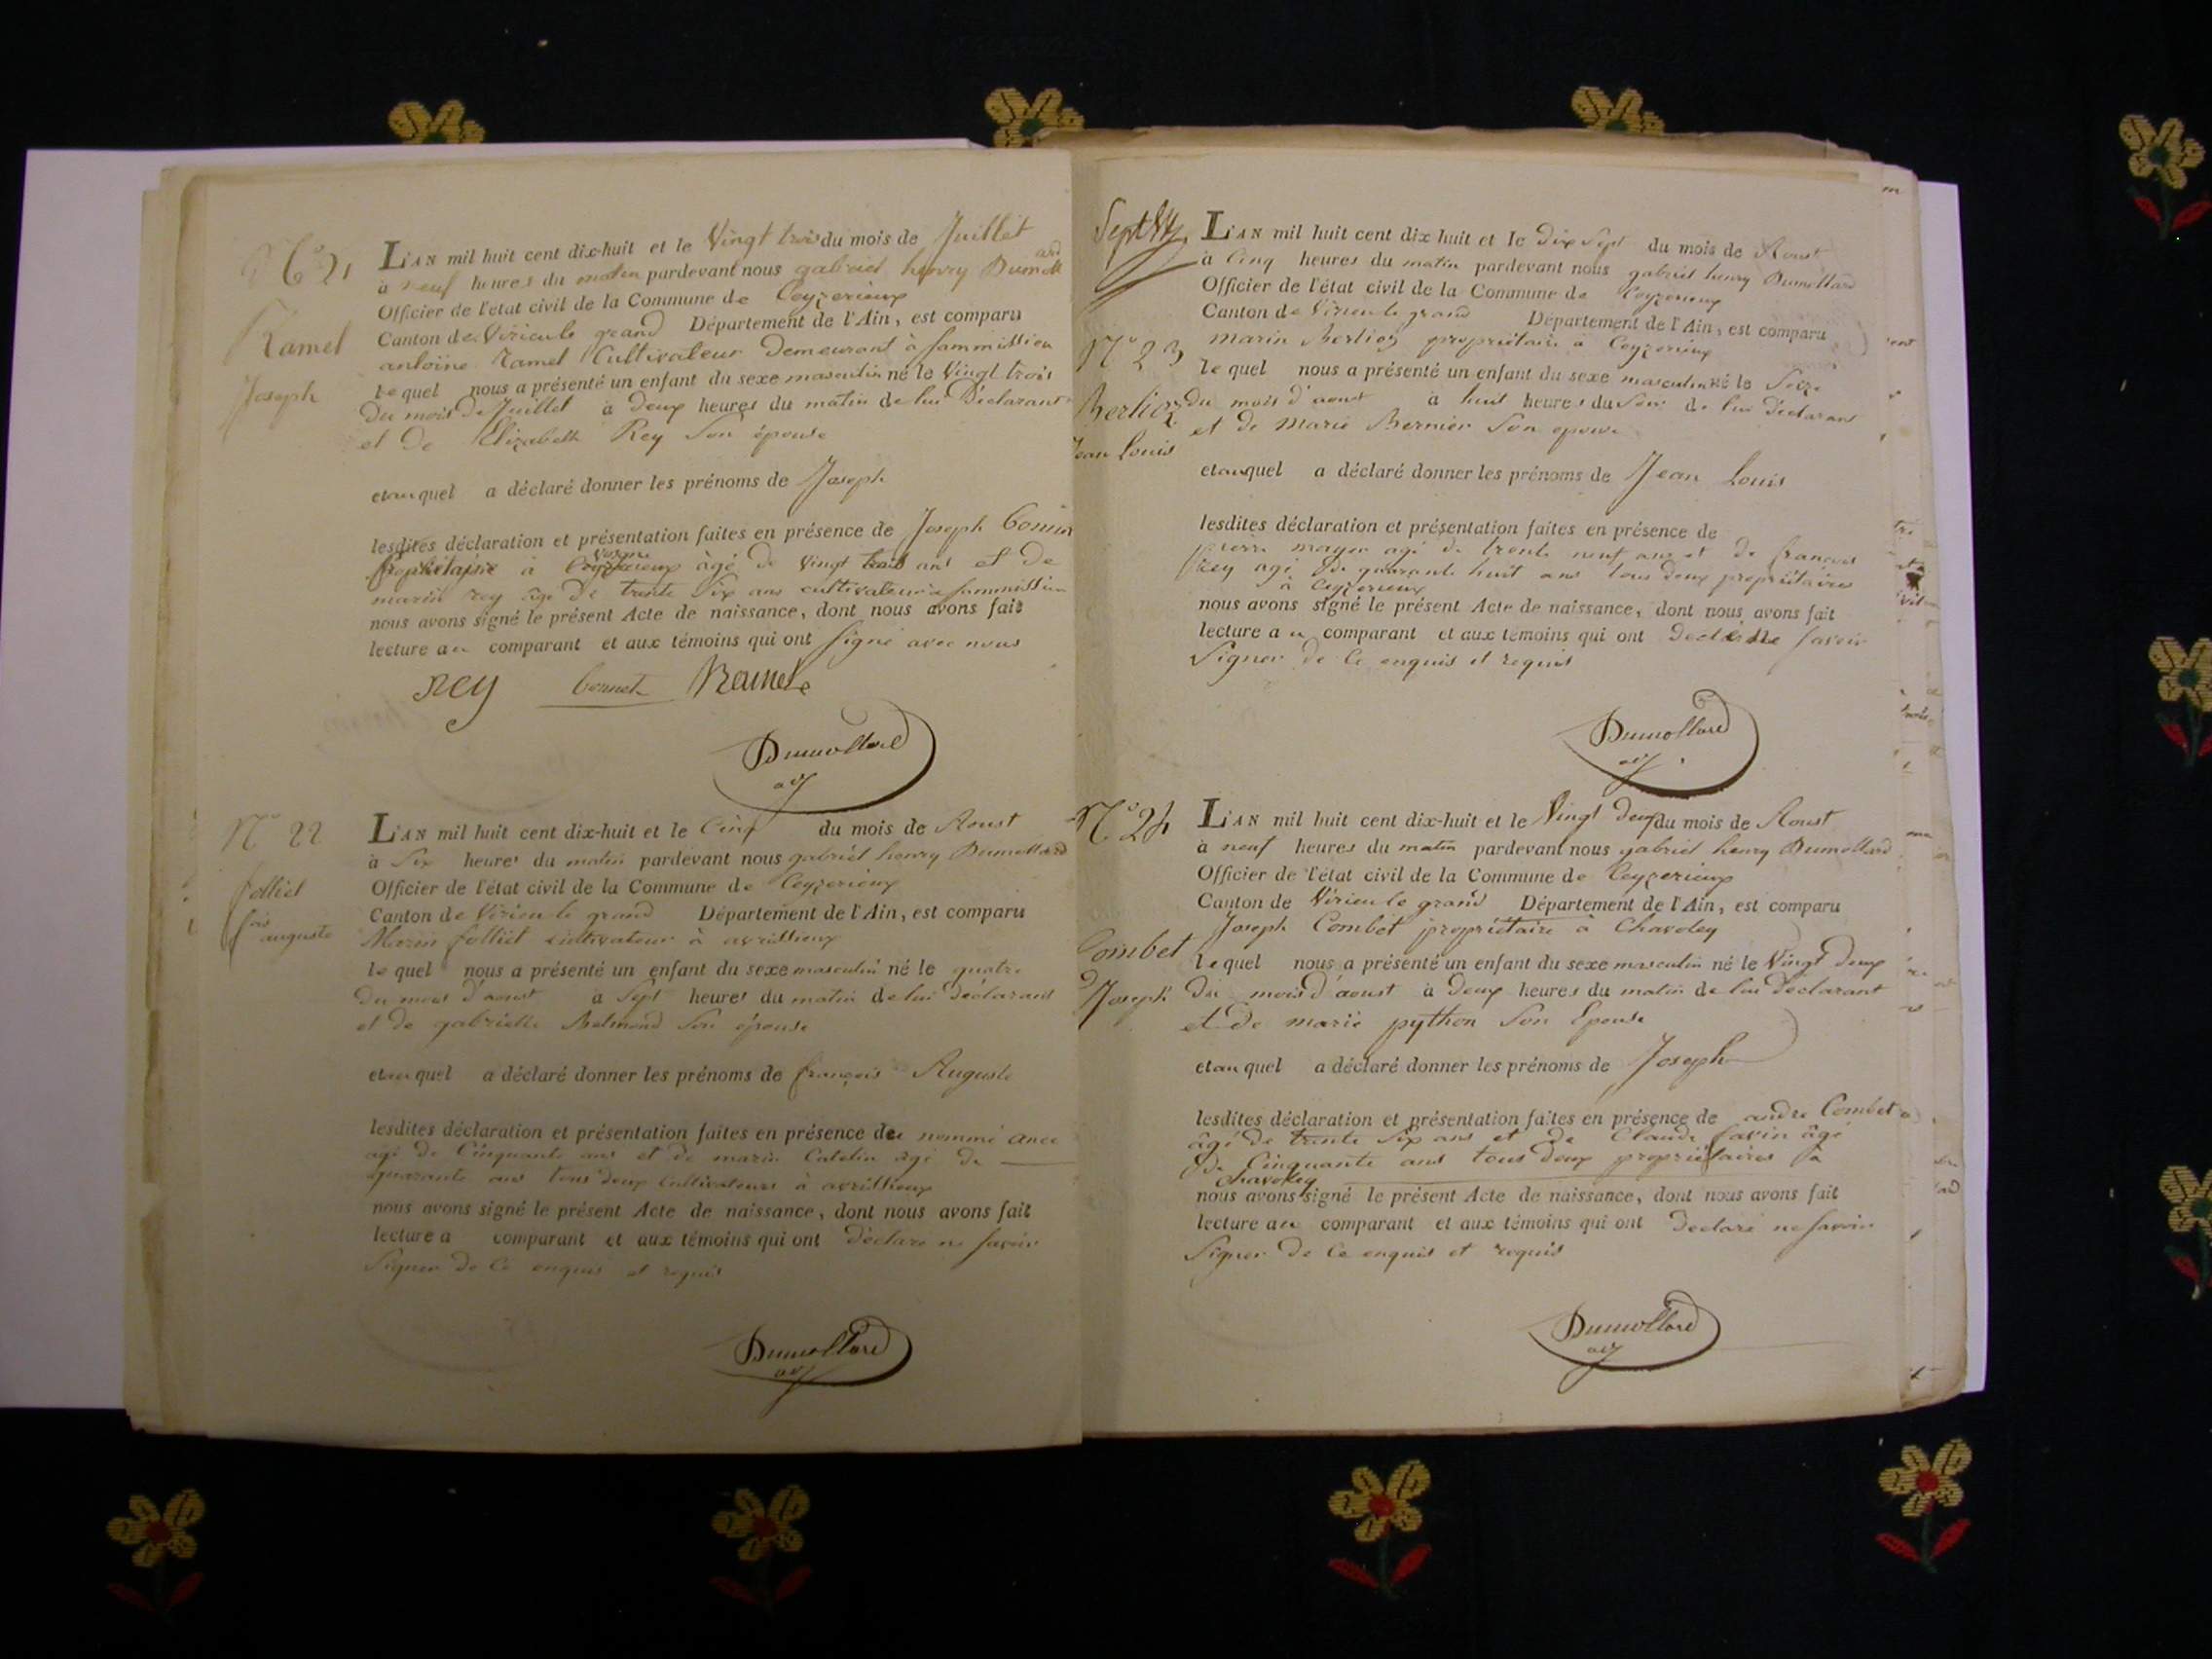 N.º 21
Ramel
Joseph
L'AN mil huit cent dix-huit et le Vingt trois du mois de Juillet
à neuf heures du matin pardevant nous gabriel henry Dumollard
Officier de l'état civil de la Commune de Ceyzerieux
Canton de Virieu le grand Département de l'Ain, est comparu
antoine Ramel Cultivateur Demeurant à
lequel nous a présenté un enfant du sexe masculin né le Vingt trois
du mois de Juillet à deux heures du matin de lui Déclarant
et de Elizabeth Rey Son épouse
et auquel a déclaré donner les prénoms de Joseph
lesdites déclaration et présentation faites en présence de Joseph
à âgé de Vingt ans et de
marin rey âgé de trente Six ans cultivateur à
nous avons signé le présent Acte de naissance, dont nous avons fait
lecture au comparant et aux témoins qui ont Signé avec nous
Rey Bonnet Ramel
Dumollard
adj
N.º 22
folliet
fois auguste
L'AN mil huit cent dix-huit et le Cinq du mois de Aoust
à Six heures du matin pardevant nous gabriel henry Dumollard
Officier de l'état civil de la Commune de Ceyzerieux
Canton de Virieu le grand Département de l'Ain, est comparu
Marin folliet cultivateur à avrillieux
lequel nous a présenté un enfant du sexe masculin né le quatre
du mois d'aoust à Sept heures du matin de lui déclarant
et de gabrielle Belmond Son épouse
et auquel a déclaré donner les prénoms de françois Auguste
lesdites déclaration et présentation faites en présence de nommé
agé de Cinquante ans et de marin Catelin agé de
quarante ans tous deux Cultivateurs à avrillieux
nous avons signé le présent Acte de naissance, dont nous avons fait
lecture a comparant et aux témoins qui ont déclaré ne Savoir
Signer de Ce enquis et requis
Dumollard
adj
L'AN mil huit cent dix huit et le dix Sept du mois de Aoust
à Cinq heures du matin pardevant nous gabriel henry Dumollard
Officier de l'état civil de la Commune de Ceyzerieux
Canton de Virieu le grand Département de l'Ain, est comparu
N.º 23
marin Berlioz propriétaire à Ceyzerieux
lequel nous a présenté un enfant du sexe masculin né le Seize
Berlioz
du mois d'aoust à huit heures du Soir de lui Déclarant
et de Marie Bernier Son épouse
Jean Louis
et auquel a déclaré donner les prénoms de Jean Louis
lesdites déclaration et présentation faites en présence de
pierre mayer agé de trente neuf ans et de françois
Rey agé de quarante huit ans tous deux propriétaires
à Ceyzerieux
nous avons signé le présent Acte de naissance, dont nous avons fait
lecture au comparant et aux témoins qui ont Savoir
Signer de Ce enquis et requis
Dumollard
adj
N.º 24
L'AN mil huit cent dix-huit et le Vingt deux du mois de Aoust
à neuf heures du matin pardevant nous gabriel henry Dumollard
Officier de l'état civil de la Commune de Ceyzerieux
Canton de Virieu le grand Département de l'Ain, est comparu
Joseph Combet propriétaire à Chavoley
Combet
lequel nous a présenté un enfant du sexe masculin né le Vingt deux
Joseph
du mois d'aoust à deux heures du matin de lui déclarant
et de marie python Son Epouse
et auquel a déclaré donner les prénoms de Joseph
lesdites déclaration et présentation faites en présence de andré Combet
âgé de trente Six ans et de Claude Savin âgé
de Cinquante ans tous deux propriétaires à
Chavoley
nous avons signé le présent Acte de naissance, dont nous avons fait
lecture au comparant et aux témoins qui ont déclaré ne Savoir
Signer de Ce enquis et requis
Dumollard
adj